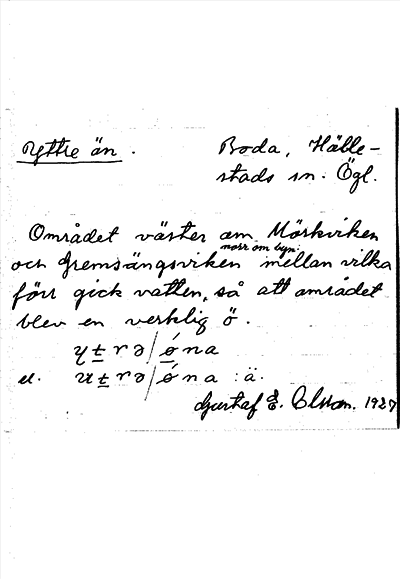 Yttre än. Boda, Hälle-
stads sn. Ögl.
Området väster om Mörkviken
norr om byn.
och Gremsängsviken mellan vilka
förr gick vatten, så att området
blev en verklig ö.
el. : ä.
Gustaf E. Olsson. 1927